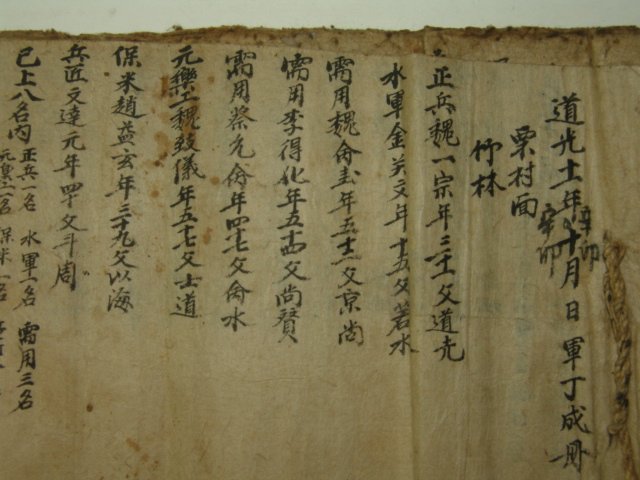 道光十一年辛卯十月 日 軍丁成冊
辛卯
栗村面
竹林
正兵魏一宗年三十父道光
水軍金关文年十五父若水
需用魏尙圭年五十二父京尙
需用李得化年五十四父尚賢
需用蔡允尙年四十七父尙水
元樂工魏致儀年五十七父士道
保米趙益玄年三十九父以海
兵匠文達元年四十父斗周
已上八名內 正兵一名 水軍一名 需用三名
元樂工一名 保米一名